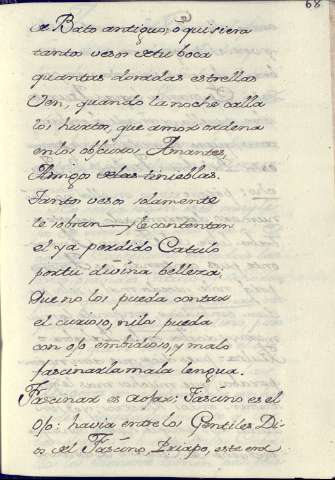 68
a Bato antiguo, o quisiera
tantos vesos de tu boca
quantas doradas estrellas
Ven, quando la noche calla
los hurtos, que amor ordena
en los obscuros Amantes,
Amigo de las tinieblas.
Tantos vesos solamente
le sobran y le contentan
el ya perdido Catulo
por tu divina belleza,
Que no los pueda contar
el curioso, ni los pueda
con ojo embidioso, y malo
fascinar la mala lengua.
Fascinar es Aojar: Fascino es el
Ojo: havia entre los Gentiles Di-
os del Fascino, Priapo, este era